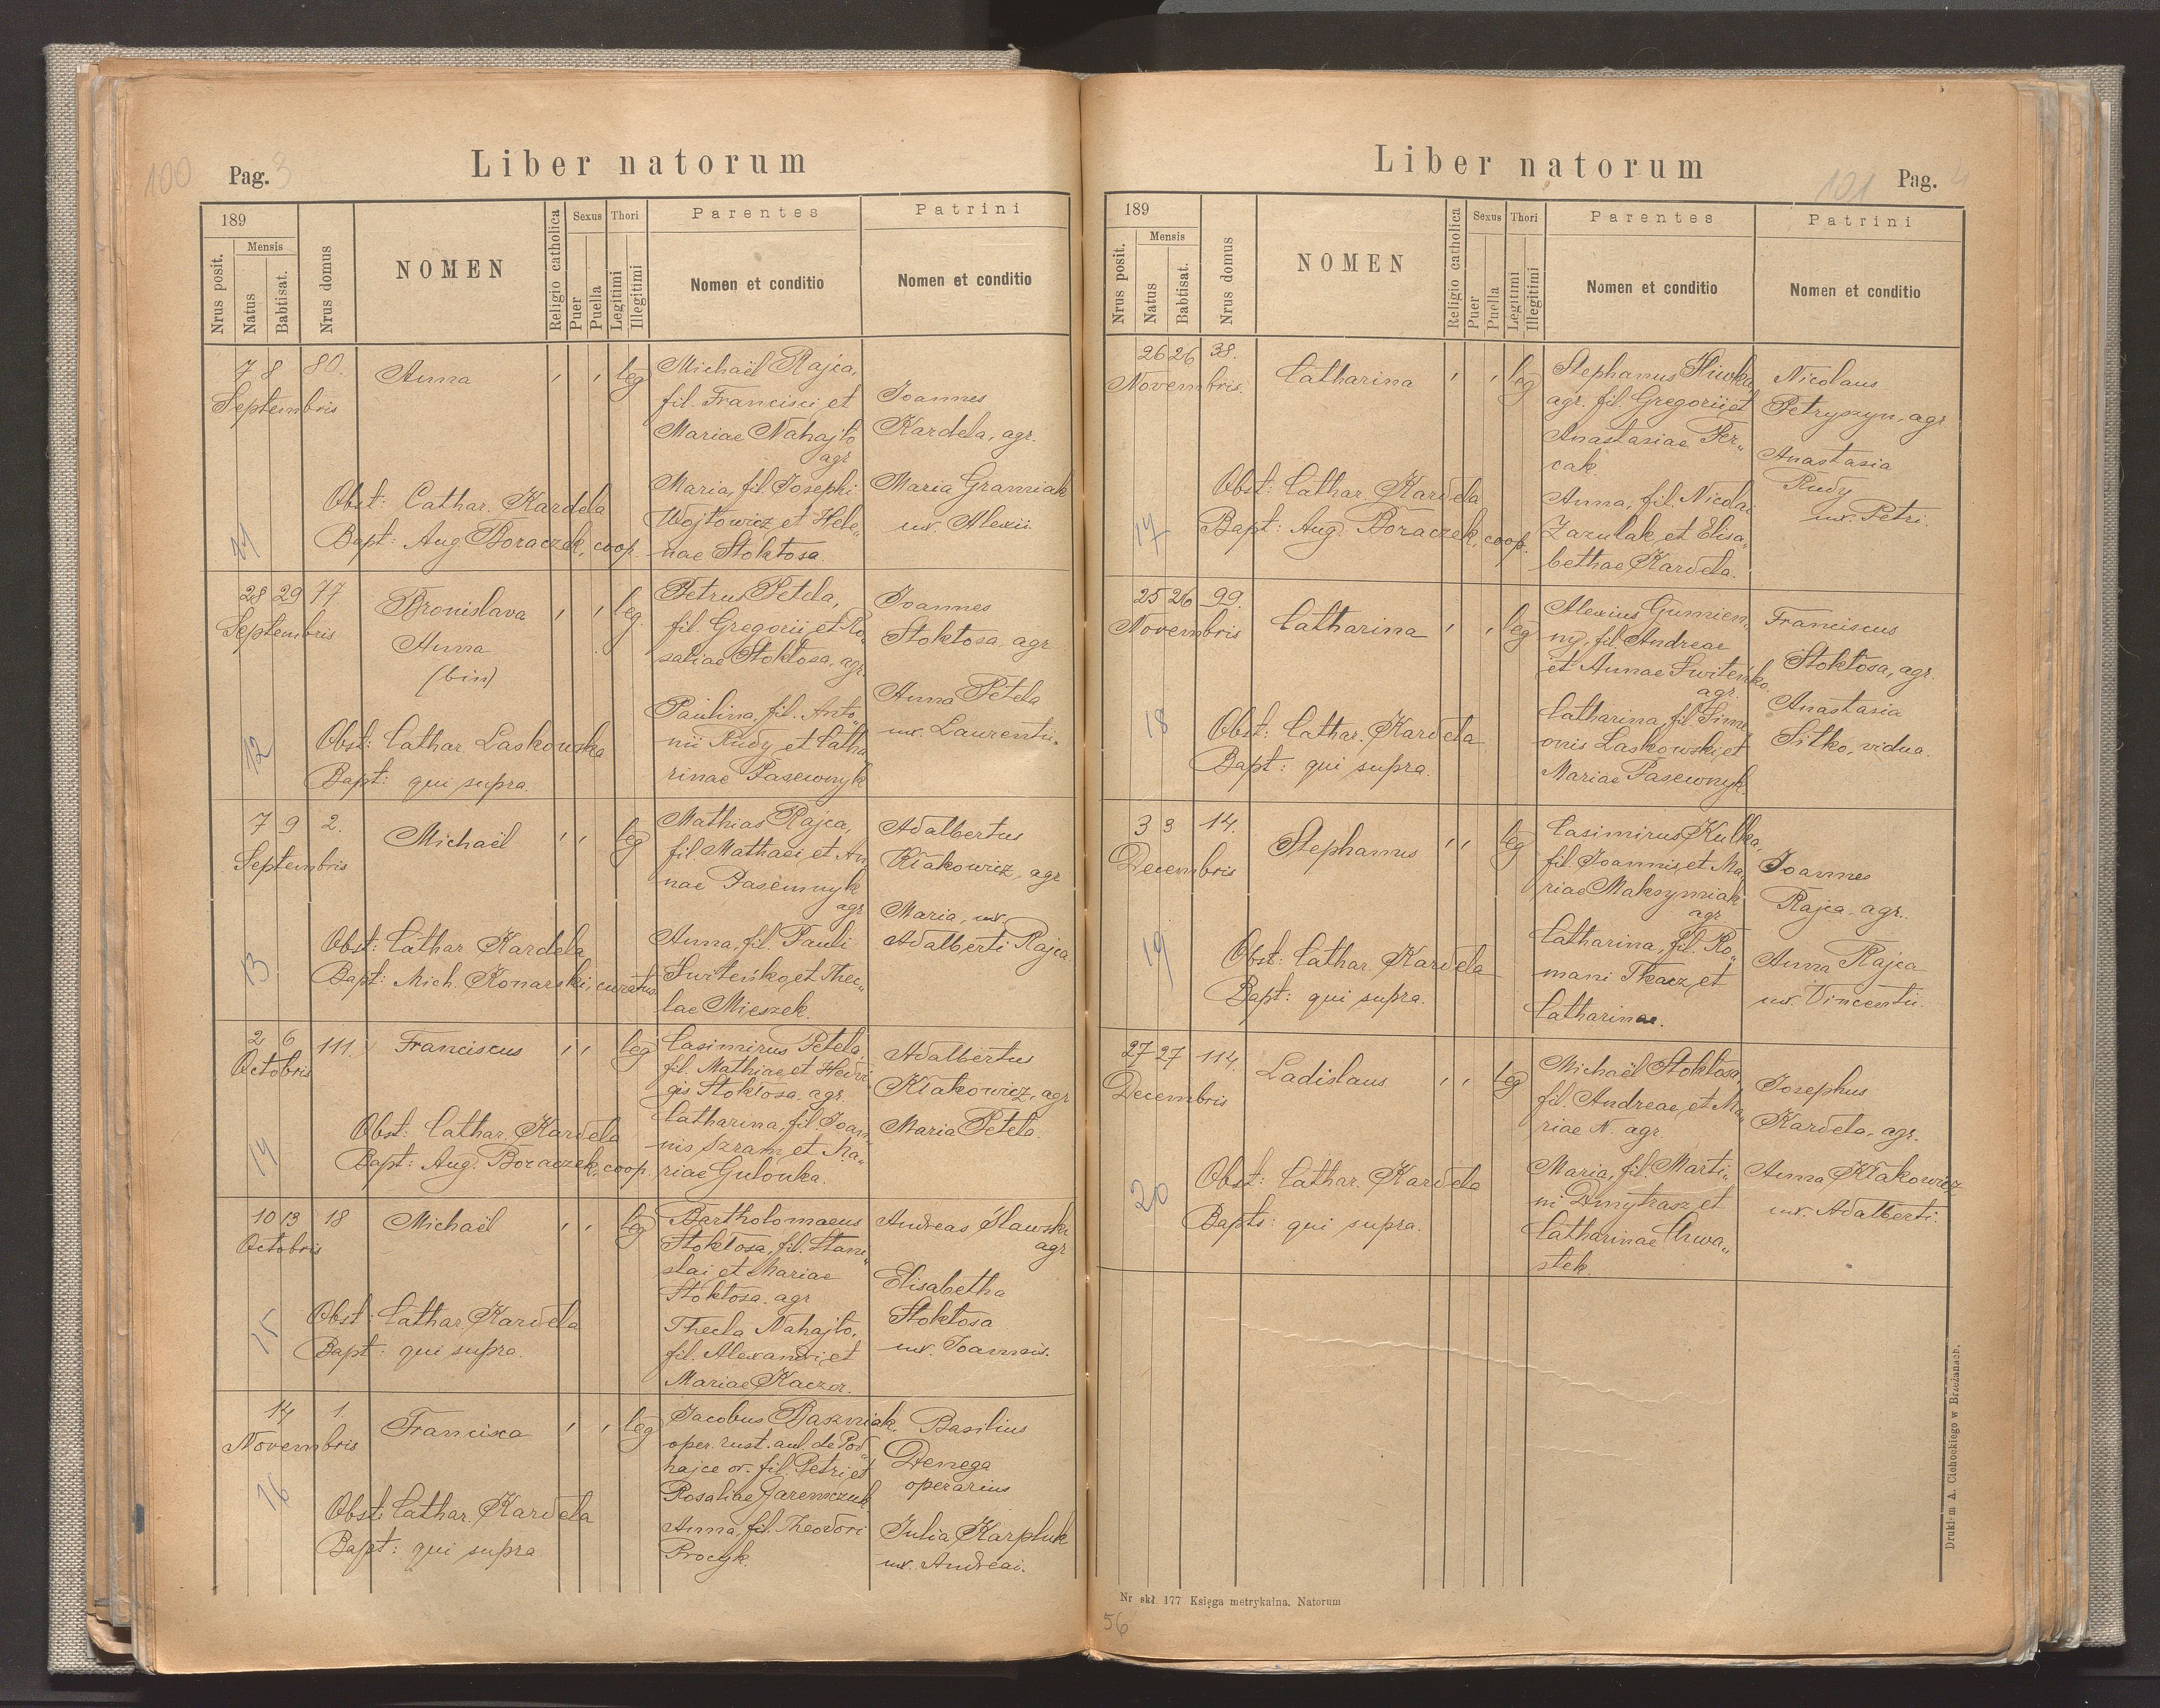 100
Pag. 3
Liber natorum
189
Nrus posit.
Mensis
Natus
Babtisat.
Nrus domus
NOMEN
Religio catholica
Sexus
Puer
Puella
Thori
Legitimi
Illegitimi
Parentes
Nomen et conditio
Patrini
Nomen et conditio
7 8 80.
Septembris
Anna
leg
Michaël Rajca,
fil. Francisci et
Mariae Nahajło
agr
Maria, fil. Josephi
Wojtowicz et Hele„
nae Stokłosa
Joannes
Kardela, agr.
Maria Gramiak
ux. Alexii
Obst: Cathar. Kardela
Bapt: Aug. Boraczek, coop.
11
28 29 77
Septembris
Bronislava
Anna
(bin)
leg.
Petrus Petela,
fil. Gregorii et Ro„
saliae Stokłosa, agr.
Paulina, fil. Anto„
nii Rudy et Catha
rinae Pasewnyk
Joannes
Stokłosa agr
Anna Petela
ux. Laurentii.
Obst: Cathar. Laskowska
Bapt: qui supra.
12
7 9 2.
Septembris
Michaël
leg
Mathias Rajca,
fil. Mathaei et An
nae Pasewnyk
agr
Anna, fil. Pauli
Switeńko et Thec„
lae Mieszek.
Adalbertus
Kłakowicz, agr
Maria, ux.
Adalberti Rajca
Obst: Cathar. Kardela
Bapt: Mich. Konarski, curatus.
13
2 6 111.
Octobris
Franciscus
leg
Casimirus Petela,
fil. Mathiae et Hedvi
gis Stokłosa. agr.
Catharina, fil. Joan„
nis Szram et Ma„
riae Gulonka.
Adalbertus
Kłakowicz, agr
Maria Petela.
Obst: Cathar. Kardela
Bapt: Aug. Boraczek, coop.
14
10 13 18
Octobris
Michaël
leg
Bartholomaeus
Stokłosa, fil. Stani„
slai et Mariae
Stokłosa. agr
Thecla Nahajło,
fil. Alexandri et
Mariae Kaczor.
Andreas Sławski
agr
Elisabetha
Stokłosa
ux. Joannis.
Obst: Cathar. Kardela
Bapt: qui supra.
15
14 1.
Novembris
Francisca
leg
Jacobus Baszniak,
oper. rust. aul. de Pod
hajce or. fil. Petri et
Rosaliae Jaremczuk
Anna, fil. Theodori
Procyk.
Basilius
Denega
operarius
Julia Karpluk
ux. Andreai.
Obst: Cathar. Kardela
Bapt: qui supra
16
Liber natorum
101 Pag. 4
189
Nrus posit.
Mensis
Natus
Babtisat.
Nrus domus
NOMEN
Religio catholica
Sexus
Puer
Puella
Thori
Legitimi
Illegitimi
Parentes
Nomen et conditio
Patrini
Nomen et conditio
26 26 38.
Novembris.
Catharina
leg
Stephanus Sliwka
agr. fil. Gregorii et
Anastasiae Fer„
cak.
Anna, fil. Nicolai
Zazulak et Elisa„
bethae Kardela.
Nicolaus
Petryszyn, agr
Anastasia
Rudy
ux. Petri.
Obst: Cathar. Kardela
Bapt: Aug. Boraczek, coop.
17
25 26 99.
Novembris
Catharina
leg
Alexius Gumien„
ny, fil. Andreae
et Annae Switeńko.
agr.
Catharina, fil. Sime
onis Laskowski et
Mariae Pasewnyk.
Franciscus
Stokłosa, agr.
Anastasia
Sitko, vidua
Obst: Cathar. Kardela
Bapt: qui supra.
18
3 3 14.
Decembris
Stephanus
leg
Casimirus Kulka,
fil. Joannis et Ma„
riae Maksymiak
agr
Catharina, fil. Ro„
mani Tkacz et
Catharinae.
Joannes
Rajca agr.
Anna Rajca
ux. Vincentii.
Obst: Cathar. Kardela
Bapt: qui supra.
19
27 27 114.
Decembris
Ladislaus
leg
Michaël Stokłosa,
fil. Andreae et Ma„
riae N. agr.
Maria, fil. Marti„
ni Dmytrasz et
Catharinae Chwa„
stek.
Josephus
Kardela, agr.
Anna Kłakowicz
ux. Adalberti.
Obst: Cathar. Kardela
Bapts: qui supra.
20
Nr skł. 177 Księga metrykalna. Natorum
56
Drukiem A. Cichockiego w Brzeżanach.